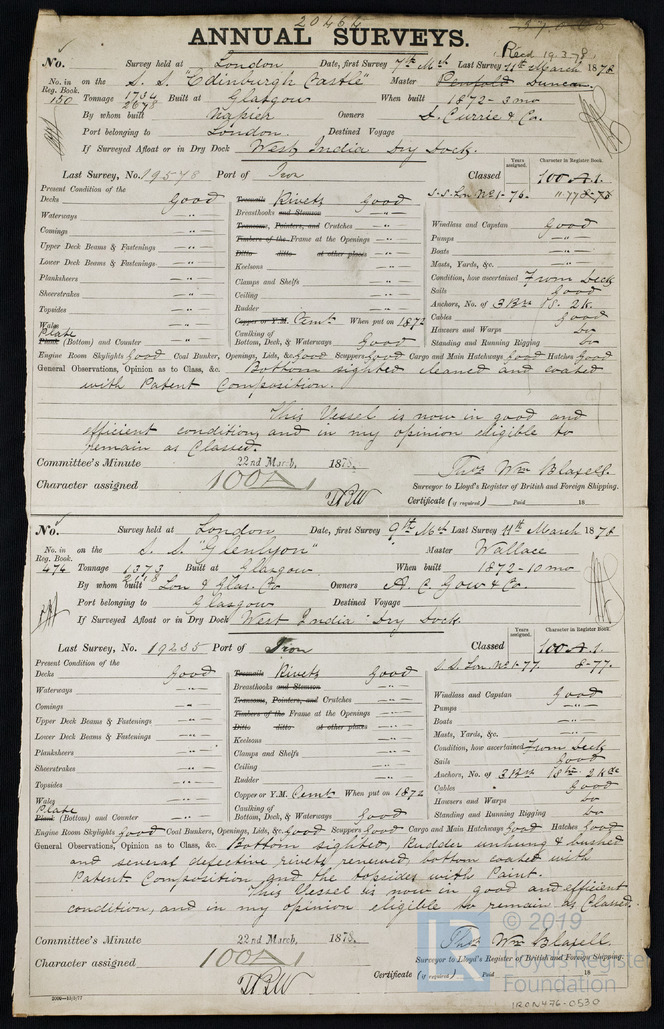 20464
ANNUAL SURVEYS.
Recd 19.3.78
No. Survey held at London Date, first Survey 7th Mch Last Survey 11th March 1878
No. in Reg. Book. 150 on the S. S. "Edinburgh Castle" Master Penfold Duncan
Tonnage 1734 2678 Built at Glasgow When built 1872-3 mo
By whom built Napier Owners D. Currie & Co.
Port belonging to London. Destined Voyage
If Surveyed Afloat or in Dry Dock West India Dry Dock.
Years assigned. Character in Register Book.
Last Survey, No. 19578 Port of Iron Classed 100 A.1.
S.S. Lon. No 1-76.
Present Condition of the
Decks good Treenails Rivets good
Waterways -"- Breasthooks and Stemson -"- Windlass and Capstan good
Comings -"- Transoms, Pointers, and Crutches -"- Pumps -"-
Upper Deck Beams & Fastenings -"- Timbers of the Frame at the Openings -"- Boats -"-
Ditto ditto at other places -"- Masts, Yards, &c. -"-
Lower Deck Beams & Fastenings -"- Keelsons -"- Condition, how ascertained From Deck
Planksheers -"- Clamps and Shelfs -"- Sails good
Sheerstrakes -"- Ceiling -"- Anchors, No. of 3 Brs 1S. 2K.
Topsides -"- Rudder -"- Cables good
Wales -"- Copper or Y.M. Cemt. When put on 1872 Hawsers and Warps Do
Plate Plank (Bottom) and Counter -"- Caulking of Bottom, Deck, & Waterways good Standing and Running Rigging Do
Engine Room Skylights good Coal Bunker, Openings, Lids, &c. good Scuppers good Cargo and Main Hatchways good Hatches good
General Observations, Opinion as to Class, &c. Bottom sighted cleaned and coated
with Patent Composition.
This Vessel is now in good and
efficient condition, and in my opinion eligible to
remain as Classed.
Committee's Minute 22nd March, 1878. Thos Wm Blaxell.
Surveyor to Lloyd's Register of British and Foreign Shipping.
Character assigned 100A1
Certificate (if required) Paid 18
No. Survey held at London Date, first Survey 9th Mch Last Survey 11th March 1878
No. in Reg. Book. 474 on the S. S. "Glenlyon" Master Wallace
Tonnage 1373 2118 Built at Glasgow When built 1872-10 mo
By whom built Lon & Glas. Co Owners A. C. Gow & Co.
Port belonging to Glasgow Destined Voyage
If Surveyed Afloat or in Dry Dock West India Dry Dock
Years assigned. Character in Register Book.
Last Survey, No. 19255 Port of Iron Classed 100 A.1.
S.S. Lon. No 1-77. 8-77.
Present Condition of the
Decks good Treenails Rivets good
Waterways -"- Breasthooks and Stemson -"- Windlass and Capstan good
Comings -"- Transoms, Pointers, and Crutches -"- Pumps -"-
Upper Deck Beams & Fastenings -"- Timbers of the Frame at the Openings -"- Boats -"-
Ditto ditto at other places -"- Masts, Yards, &c. -"-
Lower Deck Beams & Fastenings -"- Keelsons -"- Condition, how ascertained From Deck
Planksheers -"- Clamps and Shelfs -"- Sails good
Sheerstrakes -"- Ceiling -"- Anchors, No. of 3 Brs
Topsides -"- Rudder -"- Cables good
Wales -"- Copper or Y.M. Cemt When put on 1872 Hawsers and Warps Do
Plate Plank (Bottom) and Counter -"- Caulking of Bottom, Deck, & Waterways good Standing and Running Rigging Do
Engine Room Skylights good Coal Bunkers, Openings, Lids, &c. good Scuppers good Cargo and Main Hatchways good Hatches good
General Observations, Opinion as to Class, &c. Bottom sighted, Rudder unhung & bushed
and several defective rivets renewed, bottom coated with
Patent Composition and the topsides with Paint.
This Vessel is now in good and efficient
condition, and in my opinion eligible to remain as Classed.
Committee's Minute 22nd March, 1878. Thos Wm Blaxell.
Surveyor to Lloyd's Register of British and Foreign Shipping.
Character assigned 100A1
Certificate (if required) Paid 18
© 2019
Lloyd's Register
Foundation
IRON476-0530